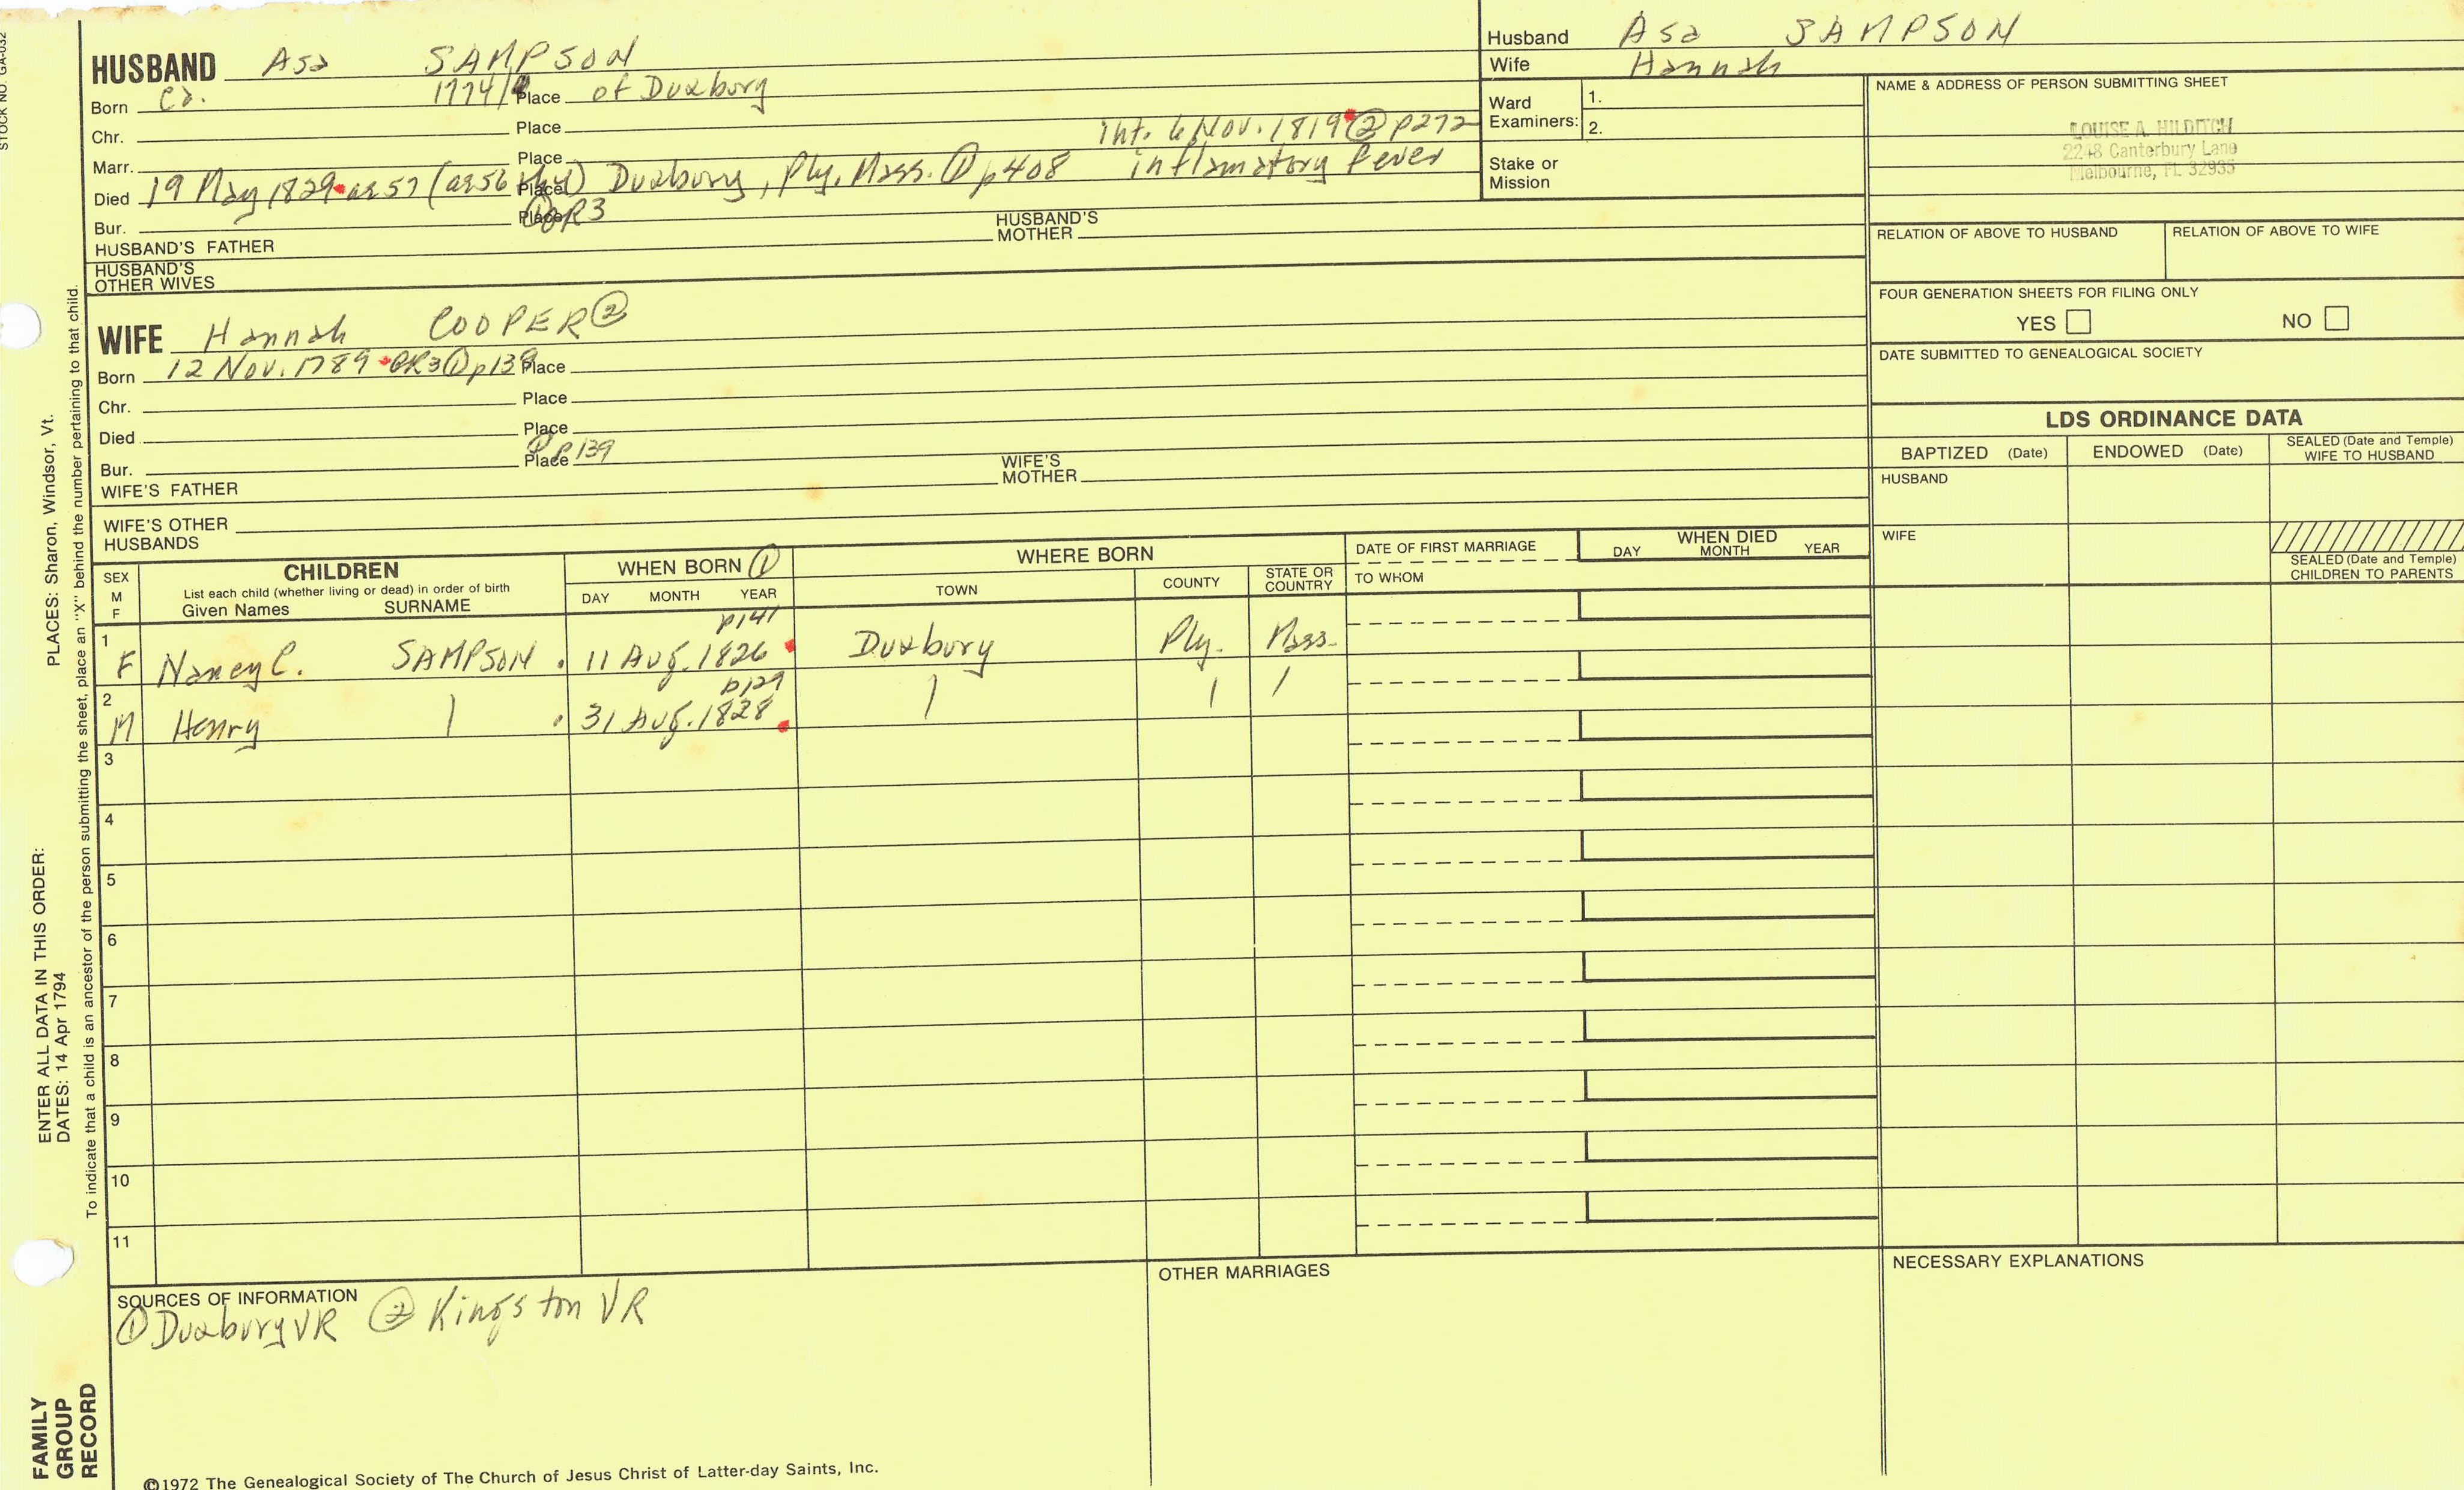 STOCK NO. GA-032
HUSBAND Asa SAMPSON
Born Ca. 1774/ Place of Duxbury
Chr. Place
int. 6 Nov. 1819 ② p272
Marr. Place
Died 19 May 1829 ae 57 (ae 56 Place Duxbury, Ply. Mass. ① p408 inflamatory fever
Bur. Place ① GR3
HUSBAND'S FATHER HUSBAND'S MOTHER
HUSBAND'S OTHER WIVES
Husband Asa SAMPSON
Wife Hannah
Ward Examiners: 1.
2.
Stake or Mission
NAME & ADDRESS OF PERSON SUBMITTING SHEET
LOUISE A. HILDITCH
2248 Canterbury Lane
Melbourne, FL 32935
RELATION OF ABOVE TO HUSBAND RELATION OF ABOVE TO WIFE
FOUR GENERATION SHEETS FOR FILING ONLY
YES NO
DATE SUBMITTED TO GENEALOGICAL SOCIETY
WIFE Hannah COOPER ②
Born 12 Nov. 1789 PR3 ① p139 Place
Chr. Place
Died Place
① p139
Bur. Place
WIFE'S FATHER WIFE'S MOTHER
WIFE'S OTHER HUSBANDS
LDS ORDINANCE DATA
BAPTIZED (Date) ENDOWED (Date) SEALED (Date and Temple) WIFE TO HUSBAND
HUSBAND
WIFE
SEALED (Date and Temple) CHILDREN TO PARENTS
SEX M F
CHILDREN
List each child (whether living or dead) in order of birth
Given Names SURNAME
WHEN BORN ①
DAY MONTH YEAR
WHERE BORN
TOWN COUNTY STATE OR COUNTRY
DATE OF FIRST MARRIAGE
TO WHOM
WHEN DIED
DAY MONTH YEAR
p141
1 F Nancy C. SAMPSON 11 Aug. 1826 Duxbury Ply. Mass.
p129
2 M Henry | 31 Aug. 1828 | | |
3
4
5
6
7
8
9
10
11
SOURCES OF INFORMATION
① Duxbury VR ② Kingston VR
OTHER MARRIAGES
NECESSARY EXPLANATIONS
©1972 The Genealogical Society of The Church of Jesus Christ of Latter-day Saints, Inc.
FAMILY GROUP RECORD
ENTER ALL DATA IN THIS ORDER:
DATES: 14 Apr 1794
PLACES: Sharon, Windsor, Vt.
To indicate that a child is an ancestor of the person submitting the sheet, place an "X" behind the number pertaining to that child.